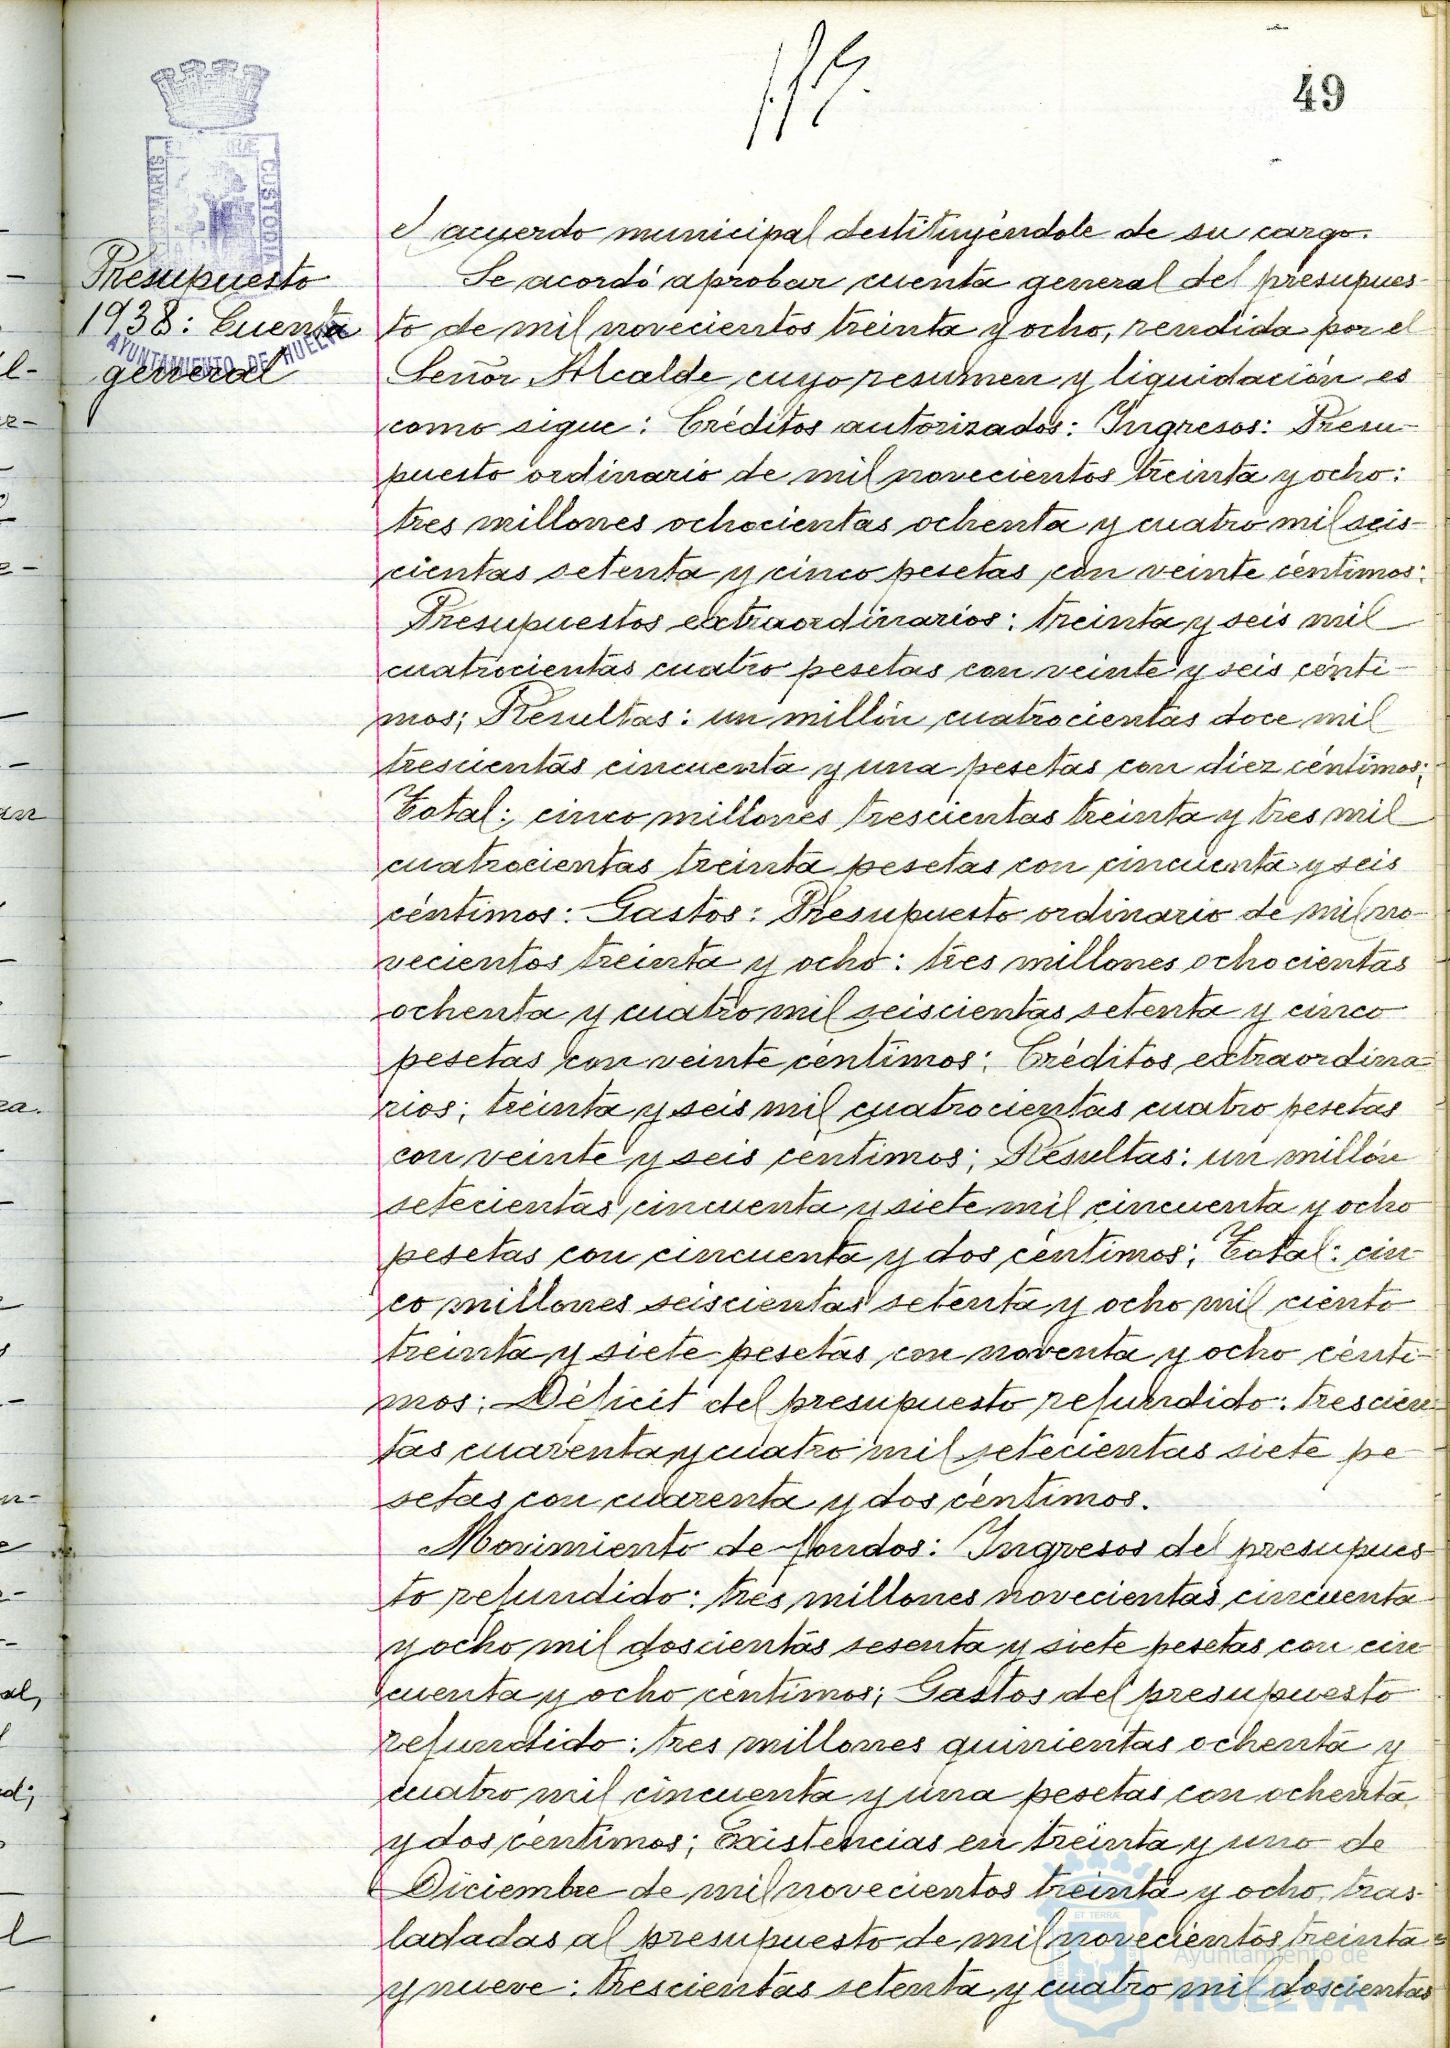 49
Presupuesto
1938: Cuenta
general
AYUNTAMIENTO DE HUELVA
MARIS
CUSTODIA
el acuerdo municipal destituyéndole de su cargo.
Se acordó aprobar cuenta general del presupues-
to de mil novecientos treinta y ocho, rendida por el
Señor Alcalde cuyo resumen y liquidación es
como sigue: Créditos autorizados: Ingresos: Presu-
puesto ordinario de mil novecientos treinta y ocho:
tres millones ochocientas ochenta y cuatro mil seis-
cientas setenta y cinco pesetas con veinte céntimos:
Presupuestos extraordinarios: treinta y seis mil
cuatrocientas cuatro pesetas con veinte y seis cénti-
mos; Resultas: un millón cuatrocientas doce mil
trescientas cincuenta y una pesetas con diez céntimos;
Total: cinco millones trescientas treinta y tres mil
cuatrocientas treinta pesetas con cincuenta y seis
céntimos: Gastos: Presupuesto ordinario de mil no-
vecientos treinta y ocho: tres millones ochocientas
ochenta y cuatro mil seiscientas setenta y cinco
pesetas con veinte céntimos: Créditos extraordina-
rios; treinta y seis mil cuatrocientas cuatro pesetas
con veinte y seis céntimos; Resultas: un millón
setecientas cincuenta y siete mil cincuenta y ocho
pesetas con cincuenta y dos céntimos; Total: cin-
co millones seiscientas setenta y ocho mil ciento
treinta y siete pesetas con noventa y ocho cénti-
mos: Déficit del presupuesto refundido: trescien-
tas cuarenta y cuatro mil setecientas siete pe-
setas con cuarenta y dos céntimos.
Movimiento de fondos: Ingresos del presupues-
to refundido: tres millones novecientas cincuenta
y ocho mil doscientas sesenta y siete pesetas con cin-
cuenta y ocho céntimos; Gastos del presupuesto
refundido: tres millones quinientas ochenta y
cuatro mil cincuenta y una pesetas con ochenta
y dos céntimos; Existencias en treinta y uno de
Diciembre de mil novecientos treinta y ocho tras-
ladadas al presupuesto de mil novecientos treinta
y nueve: trescientas setenta y cuatro mil doscientas
ET TERRAE
Ayuntamiento de
HUELVA